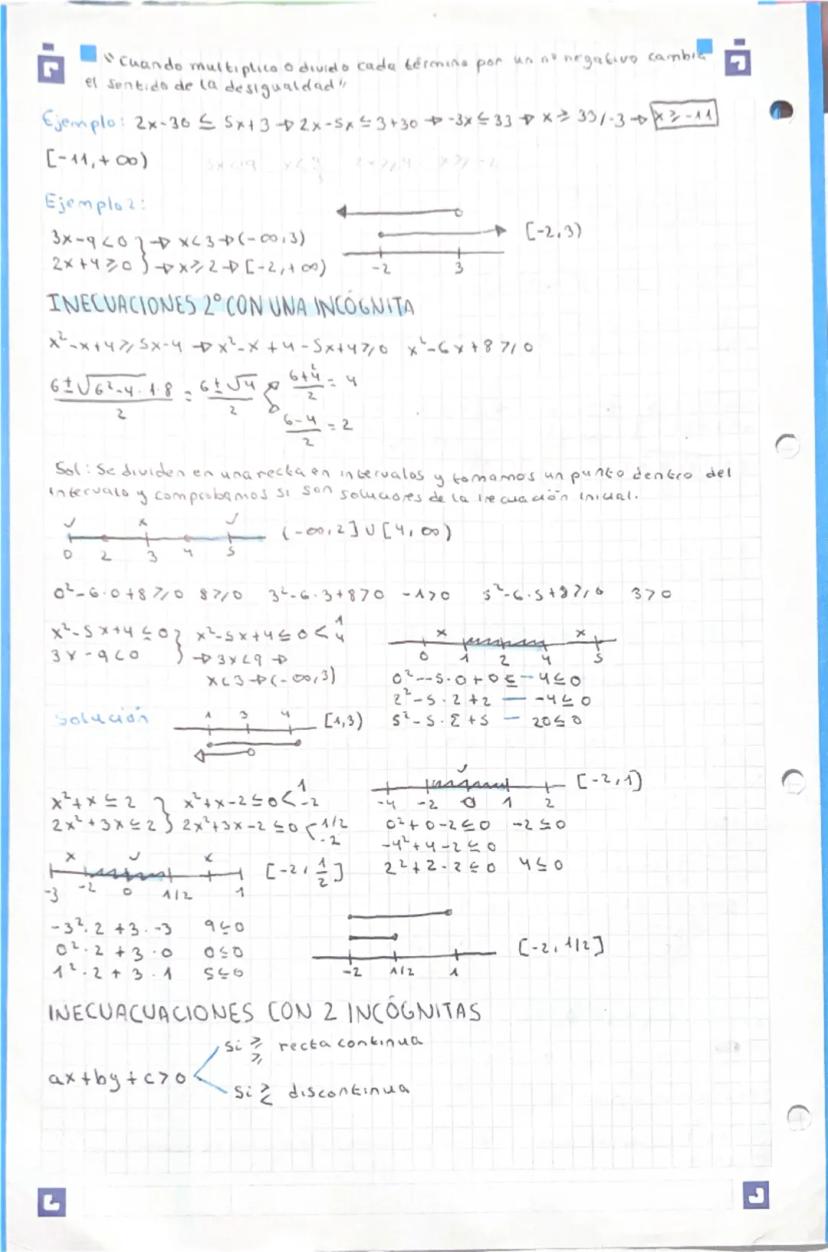 "Cuando multiplico o divido cada término por un nº negativo cambia
el sentido de la desigualdad"
Ejemplo: 2x-30 ≤ 5x+3 → 2x-5x ≤ 3+30 → -3x ≤ 33 → x ≥ 33/-3 → x ≥ -11
[-11, +∞)
Ejemplo 2:
3x-9<0 } → x<3 → (-∞,3)
2x+4≥0 } → x≥2 → [-2,+∞)
-2 3
[-2,3)
INECUACIONES 2º CON UNA INCÓGNITA
x²-x+4 ≥ 5x-4 → x²-x+4-5x+4 ≥ 0 x²-6x+8 ≥ 0
6±√6²-4·1·8 / 2 = 6±√4 / 2 < 6+4²/2 = 4
6-4/2 = 2
Sol: Se dividen en una recta en intervalos y tomamos un punto dentro del
intervalo y comprobamos si son soluciones de la inecuación inicial.
✓ x ✓
0 2 3 4 5 (-∞,2] ∪ [4,∞)
0²-6·0+8 ≥ 0 8 ≥ 0 3²-6·3+8 > 0 -1 > 0 5²-6·5+8 ≥ 0 3 > 0
x²-5x+4 ≤ 0 } x²-5x+4 ≤ 0 < 1 4
3x-9<0 } → 3x<9 →
x<3 → (-∞,3)
x x
0 1 2 4 5
0²--5·0+0 ≤ -4 ≤ 0
2²-5·2+2 — -4 ≤ 0
5²-5·Σ+5 — 20 ≤ 0
Solución 1 3 4 [1,3)
x²+x ≤ 2 } x²+x-2 ≤ 0 < 1 -2
2x²+3x ≤ 2 } 2x²+3x-2 ≤ 0 < 1/2 -2
✓
-4 -2 0 1 2 [-2,1]
0²+0-2 ≤ 0 -2 ≤ 0
-4²+4-2 ≤ 0
2²+2-2 ≤ 0 4 ≤ 0
x ✓ x
-3 -2 0 1/2 1 [-2, 1/2]
-3²·2+3·-3 9 ≤ 0
0²·2+3·0 0 ≤ 0
1²·2+3·1 5 ≤ 0
-2 1/2 1 [-2, 1/2]
INECUACUACIONES CON 2 INCÓGNITAS
ax+by+c>0
si ≥ ≥ recta continua
Si > < discontinua